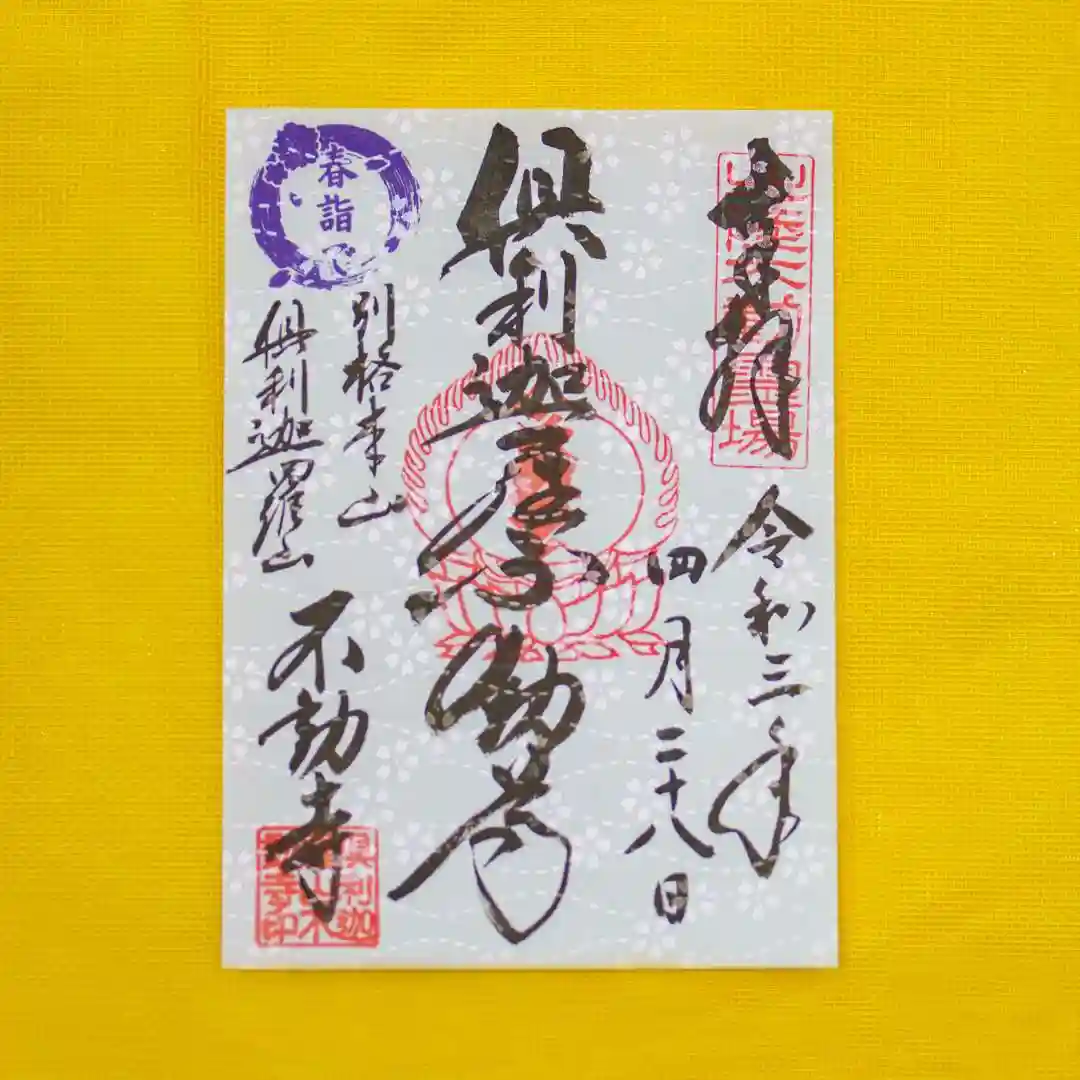 奉拝
北陸不動霊場
令和三年
四月二十八日
倶利迦羅不動尊
春詣
別格本山
倶利迦羅山
不動寺
倶利迦
羅山不
動寺印